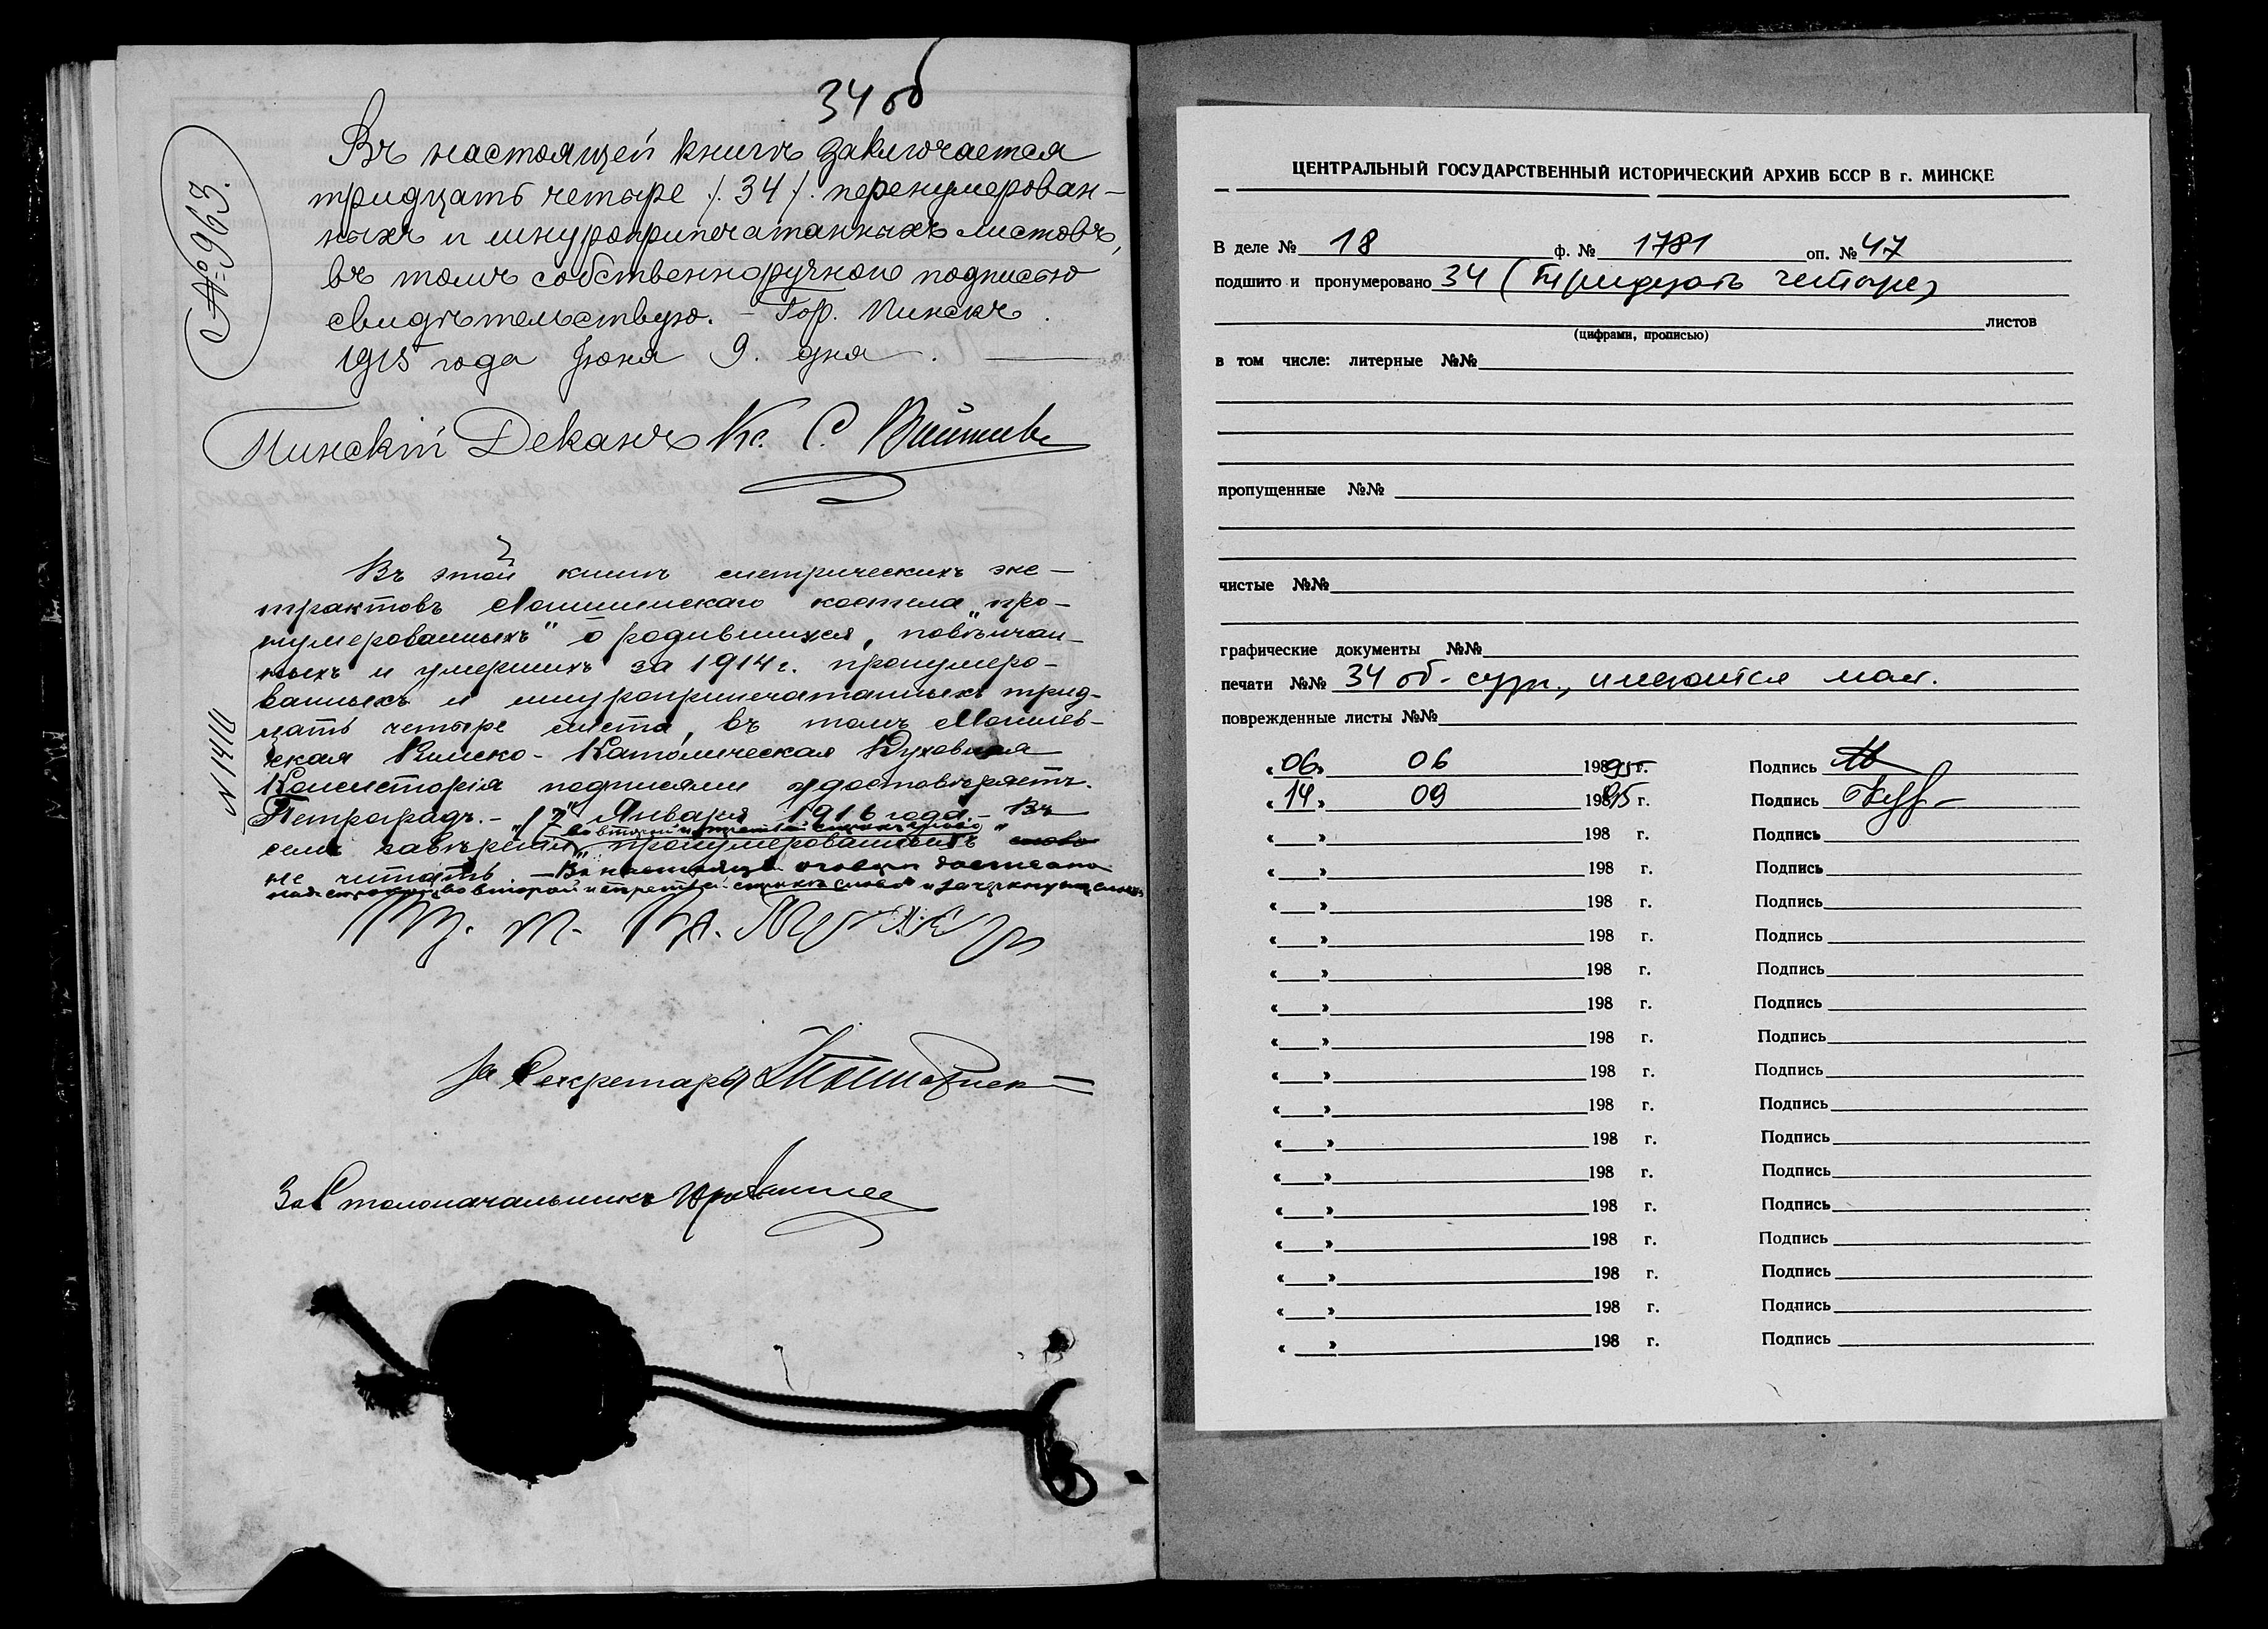 34 об
№ 963.
Въ настоящей книгѣ заключается
тридцать четыре /. 34 /. перенумерован-
ныхъ и шнуроприпечатанныхъ листовъ,
въ томъ собственноручною подписью
свидѣтельствую. – Гор. Пинскъ.
1915 года Іюня 9. дня.
Пинскій Деканъ Кс. С.
Въ этой книгѣ метрическихъ экс-
трактовъ костела „про-
нумерованныхъ" о родившихся, повѣнчан-
ныхъ и умершихъ за 1914 г. пронумеро-
ванныхъ и шнуроприпечатанныхъ трид-
цать четыре листа, въ томъ Могилев-
ская Римско-Католическая Духовная
Консисторія подписями удостовѣряетъ.
N 1410
Петроградъ. – Января 1916 года. – Въ
во второй и третьей строкѣ слово
семъ завѣреніи „пронумерованныхъ" слово
не читать. – Въ настоящей оговоркѣ
во второй и третьей строкѣ слово и зачеркнуто слово
За Секретаря
За Столоначальника
ЦЕНТРАЛЬНЫЙ ГОСУДАРСТВЕННЫЙ ИСТОРИЧЕСКИЙ АРХИВ БССР В г. МИНСКЕ
В деле № 18 ф. № 1781 оп. № 47
подшито и пронумеровано 34 (тридцать четыре)
листов
(цифрами, прописью)
в том числе: литерные №№
пропущенные №№
чистые №№
графические документы №№
печати №№ 34 об - сург., имеются
поврежденные листы №№
« 06 » 06 1995 г. Подпись
« 14 » 09 1995 г. Подпись
« » 198 г. Подпись
« » 198 г. Подпись
« » 198 г. Подпись
« » 198 г. Подпись
« » 198 г. Подпись
« » 198 г. Подпись
« » 198 г. Подпись
« » 198 г. Подпись
« » 198 г. Подпись
« » 198 г. Подпись
« » 198 г. Подпись
« » 198 г. Подпись
« » 198 г. Подпись
« » 198 г. Подпись
« » 198 г. Подпись
« » 198 г. Подпись